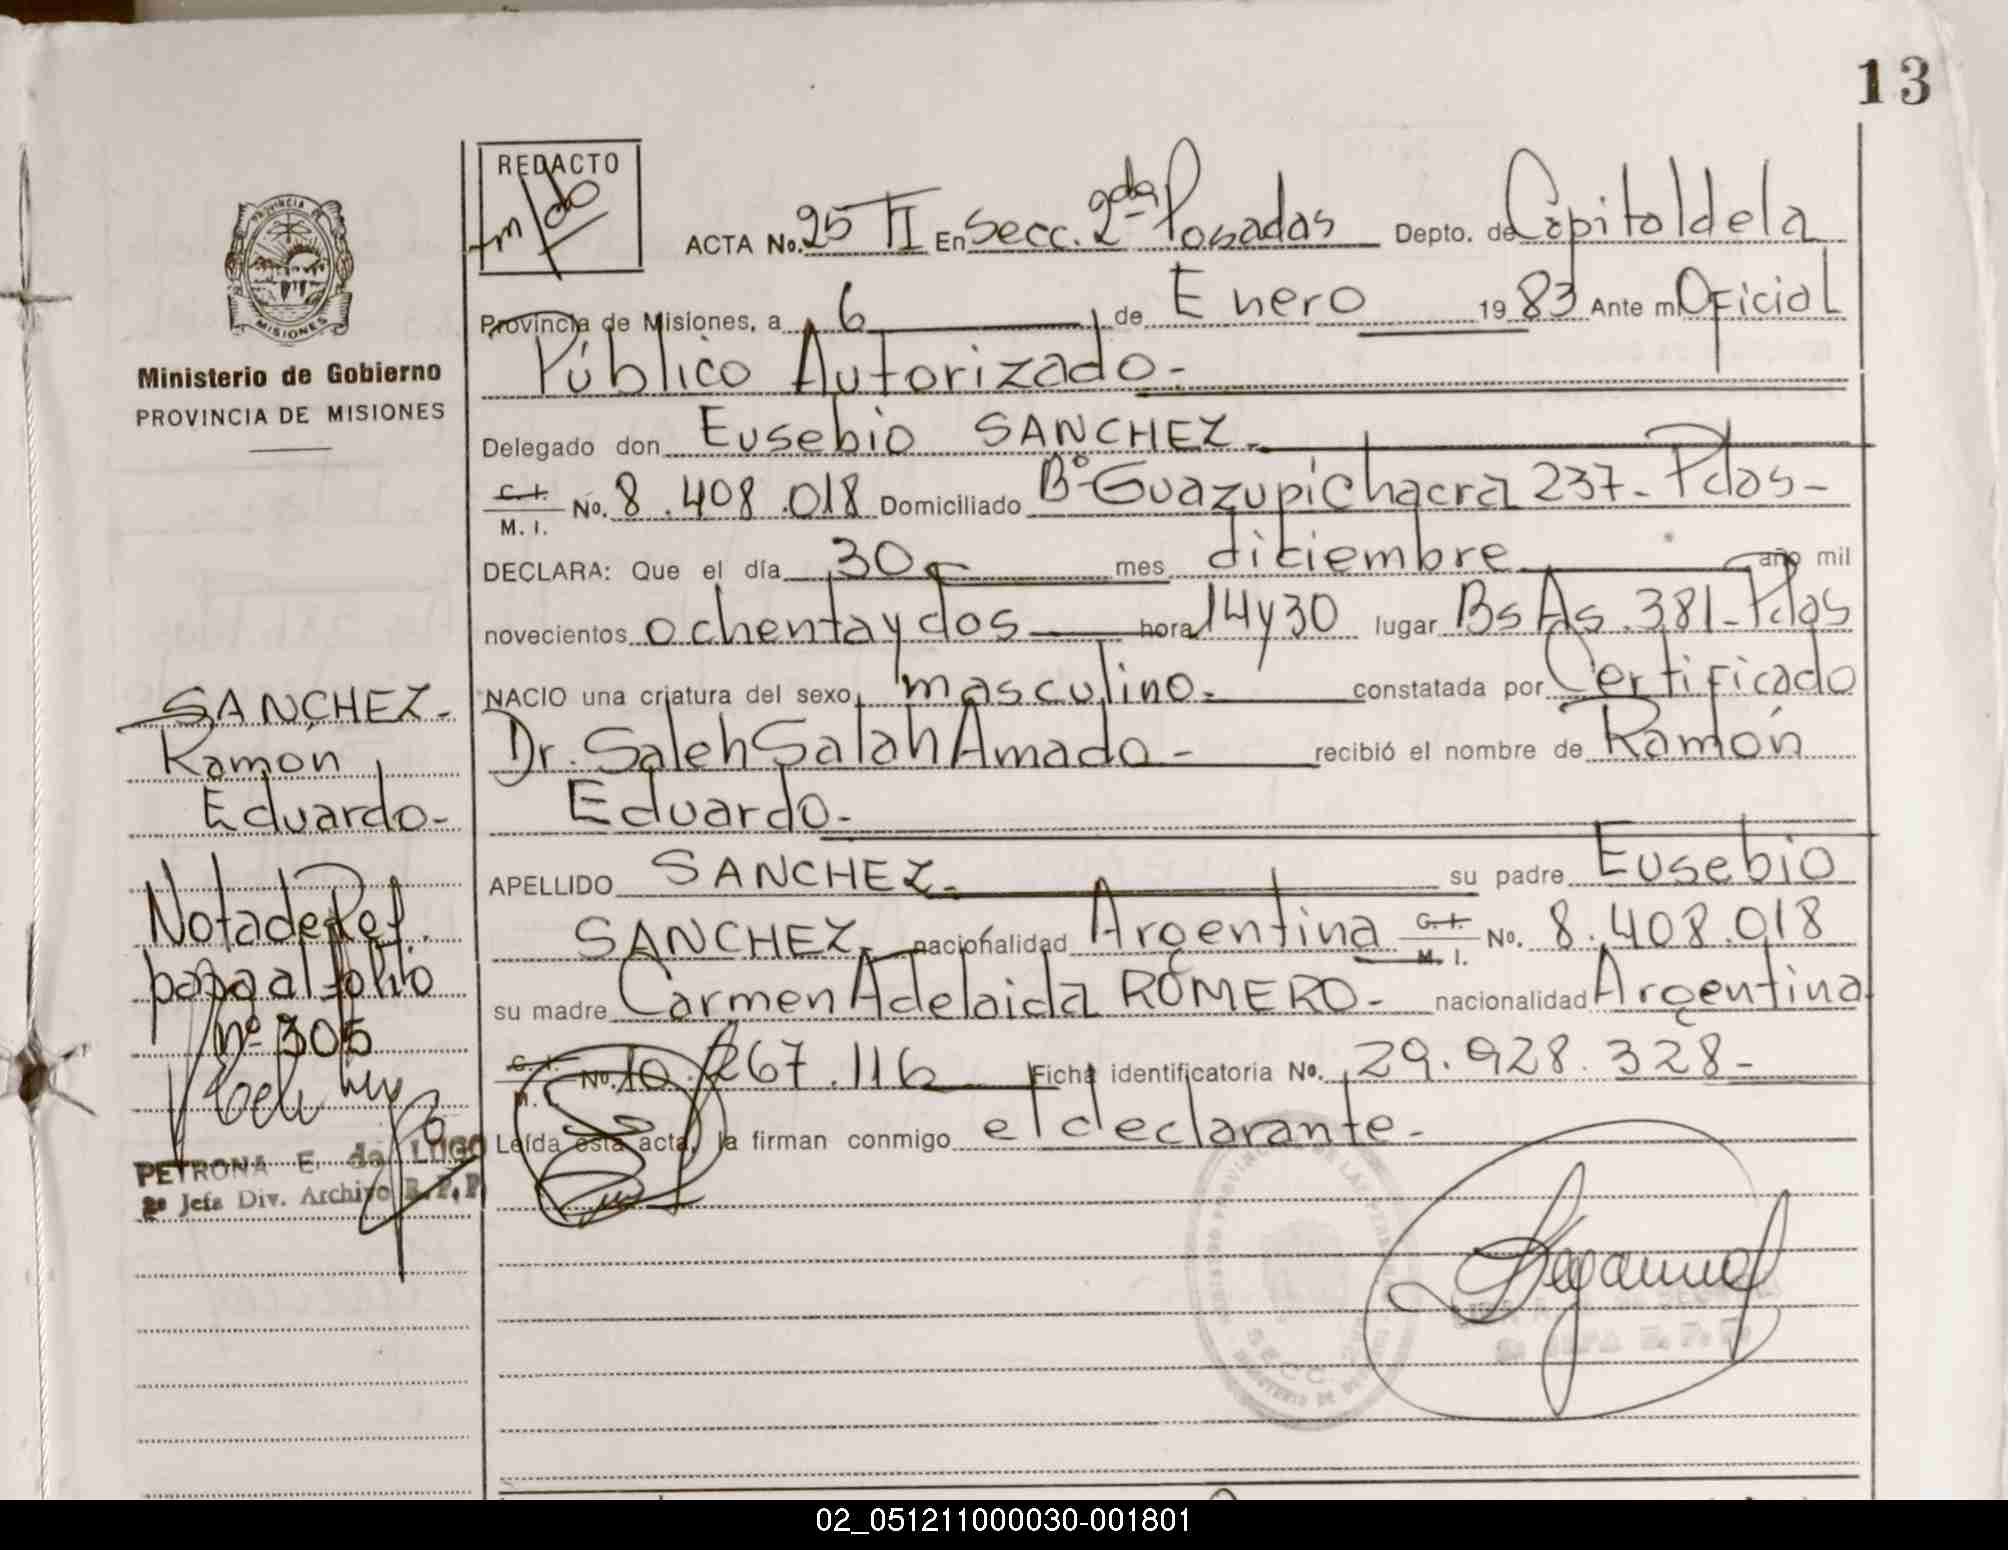 13
REDACTO
ACTA No. 25 TI En Secc. 2da Posadas Depto. de Capital de la
Provincia de Misiones, a 6 de Enero 1983 Ante mi Oficial
Público Autorizado-
Ministerio de Gobierno
PROVINCIA DE MISIONES
Delegado don Eusebio SANCHEZ-
C. I. M. I. No. 8.408.018 Domiciliado B° Guazupi Chacra 237- Pdas-
DECLARA: Que el día 30 mes diciembre año mil
novecientos ochenta y dos hora 14 y 30 lugar Bs As. 381- Pdas
NACIO una criatura del sexo masculino- constatada por Certificado
Dr. Saleh Salah Amado- recibió el nombre de Ramón
Eduardo-
APELLIDO SANCHEZ- su padre Eusebio
SANCHEZ- nacionalidad Argentina C. I. M. I. No. 8.408.018
su madre Carmen Adelaida ROMERO- nacionalidad Argentina
C. I. M. I. No. 10.267.116 Ficha identificatoria No. 29.928.328-
Leída esta acta, la firman conmigo el declarante-
SANCHEZ-
Ramón
Eduardo-
Nota de Ref.
pasa al folio
nº 305
PETRONA E. de LUGO
2º Jefa Div. Archivo R. P. P.
02_051211000030-001801